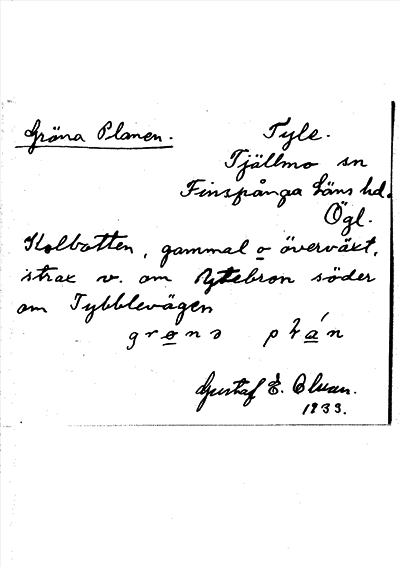 Gröna Planen.
Tyle.
Tjällmo sn
Finspånga läns hd.
Ögl.
Kolbotten, gammal o överväxt,
strax v. om bron söder
om Tybblevägen
Gustaf E.
1933.